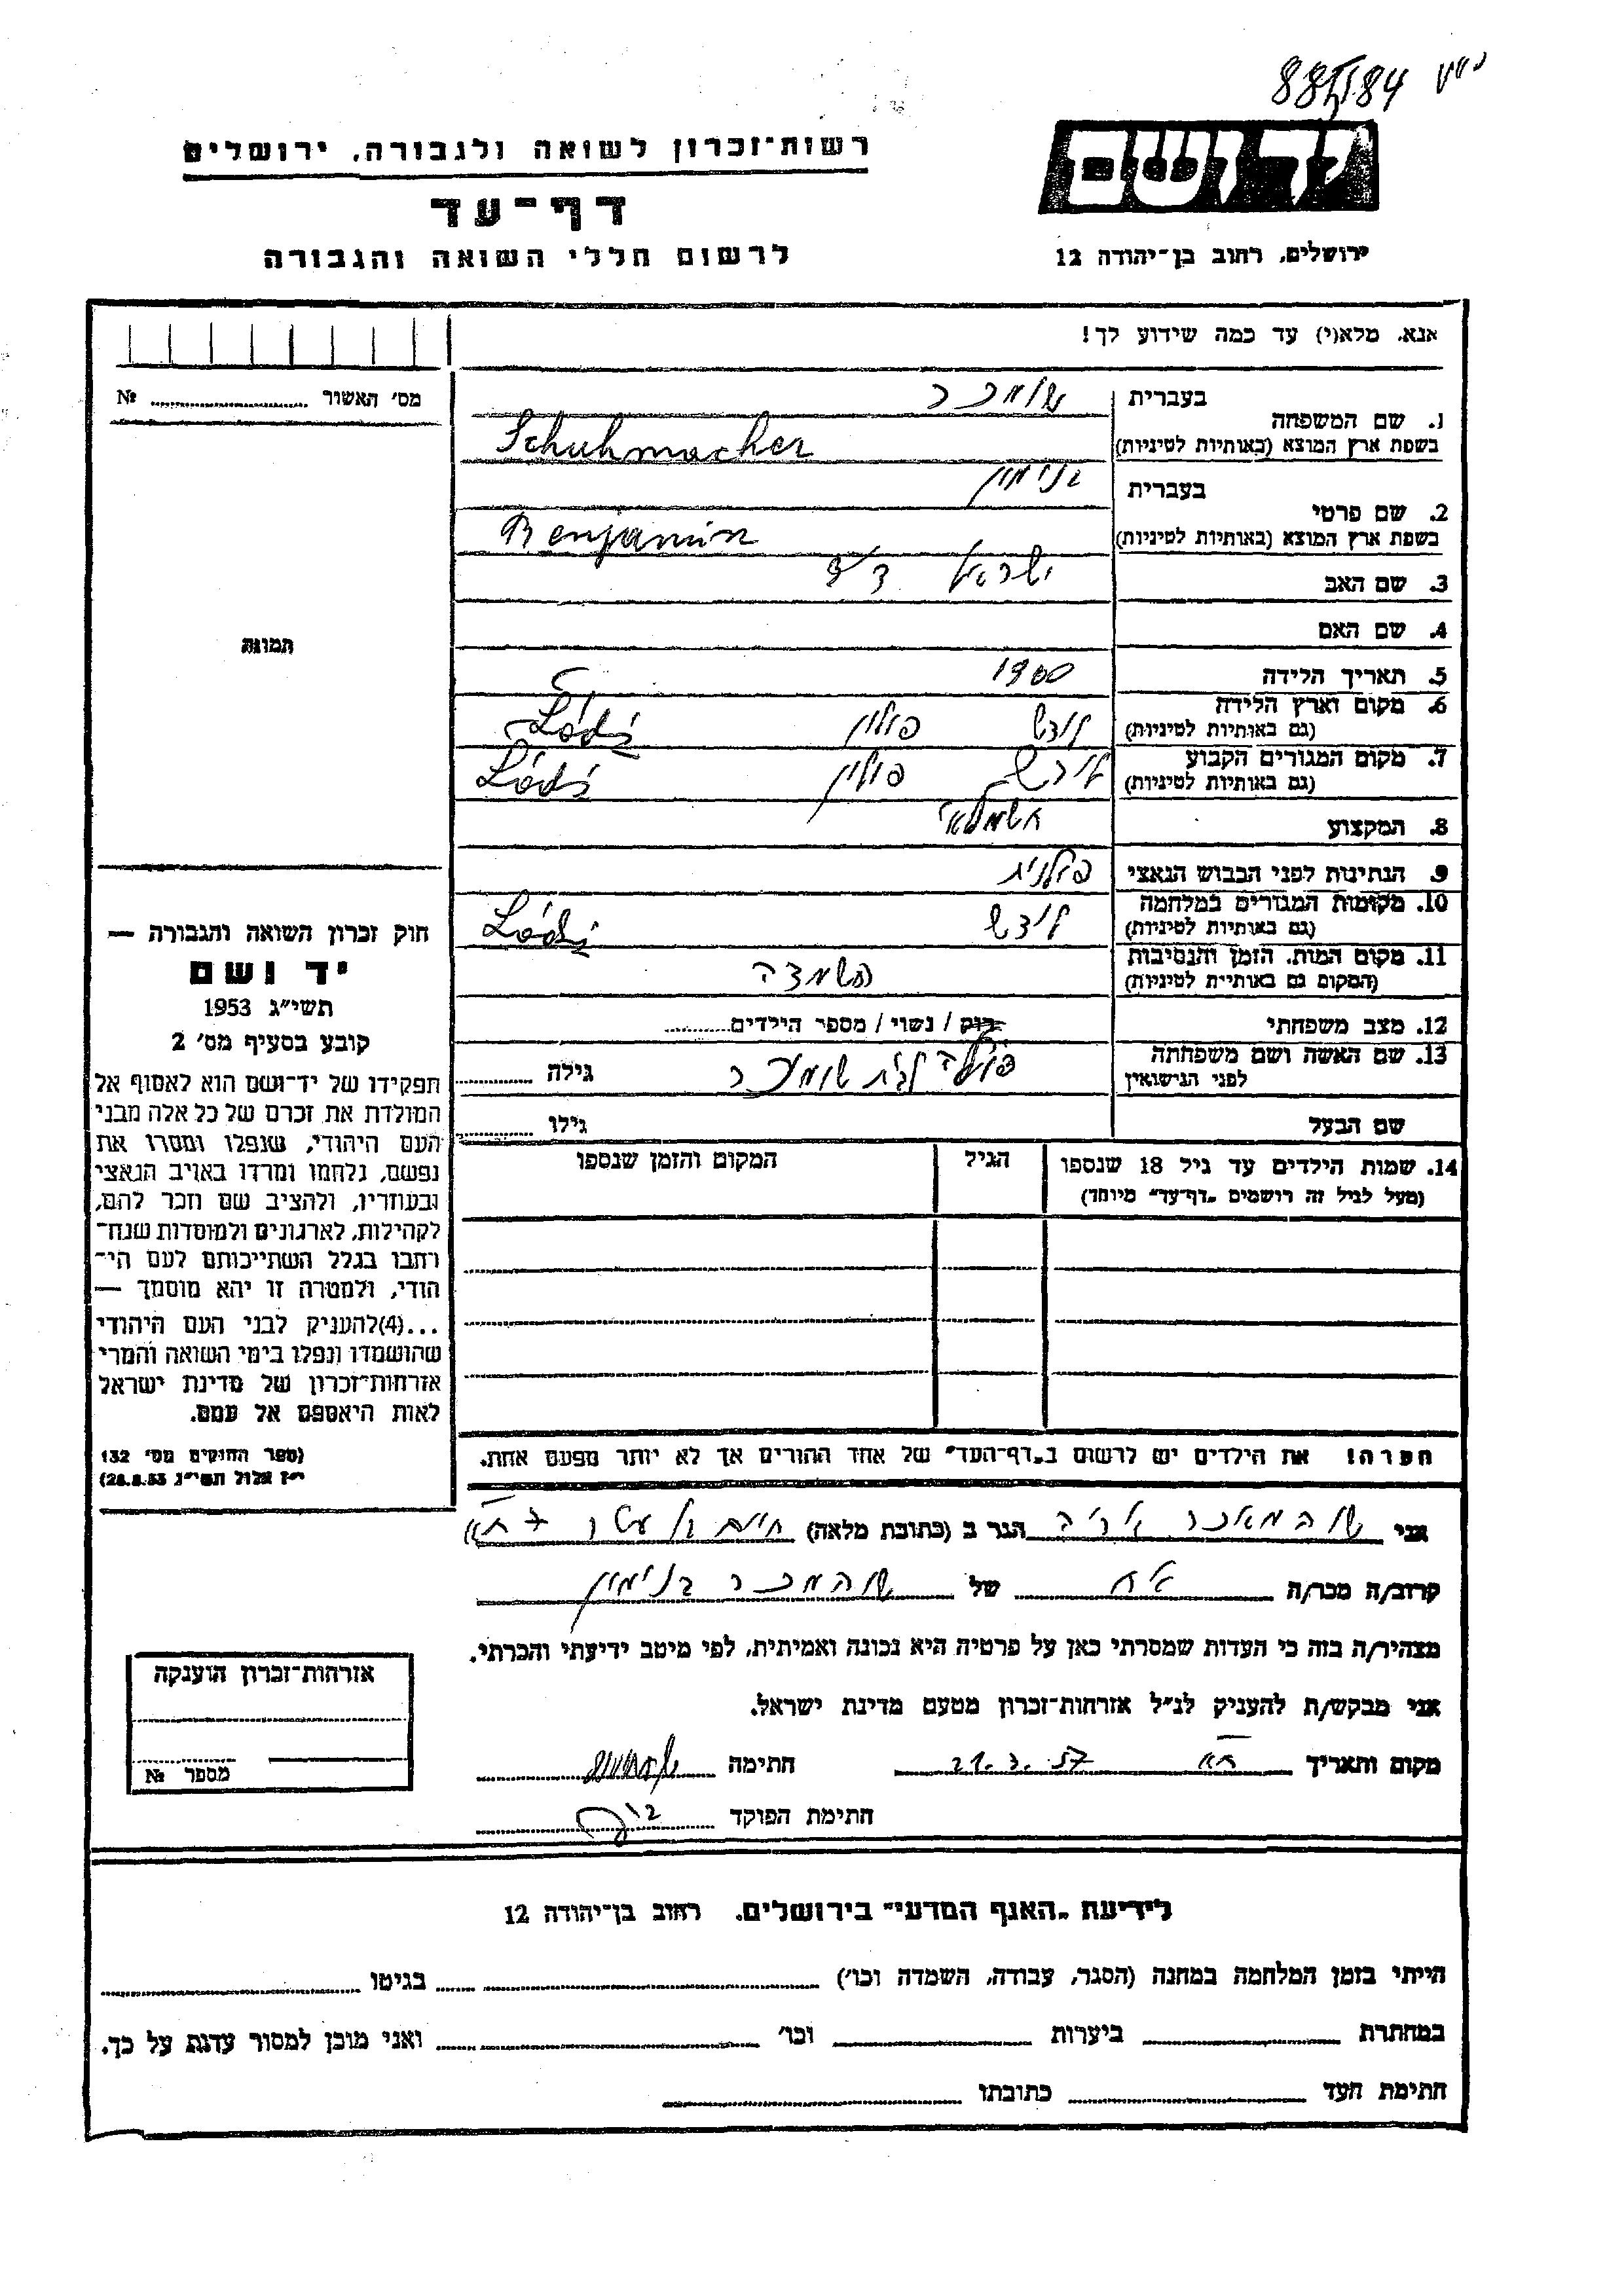 רשות־זכרון לשואה ולגבורה, ירושלים
דף־עד
לרשום חללי השואה והגבורה
יד ושם
ירושלים, רחוב בן־יהודה 12
אנא, מלא(י) עד כמה שידוע לך!
מס׳ האשור № 
תמונה
1. שם המשפחה
בעברית שומכר
בשפת ארץ המוצא (באותיות לטיניות) Schuhmacher
2. שם פרטי
בעברית בנימין
בשפת ארץ המוצא (באותיות לטיניות) Benjamin
3. שם האב ישראל דוד
4. שם האם
5. תאריך הלידה 1900
6. מקום וארץ הלידה לודש פולין Łódź
(גם באותיות לטיניות)
7. מקום המגורים הקבוע לודש פולין Łódź
(גם באותיות לטיניות)
8. המקצוע חשמלאי
9. הנתינות לפני הכבוש הנאצי פולנית
10. מקומות המגורים במלחמה לודש Łódź
(גם באותיות לטיניות)
11. מקום המות, הזמן והנסיבות השמדה
(המקום גם באותיות לטיניות)
12. מצב משפחתי רוק / נשוי / מספר הילדים
13. שם האשה ושם משפחתה שומכר גילה
לפני הנישואין
שם הבעל גילו
14. שמות הילדים עד גיל 18 שנספו הגיל המקום והזמן שנספו
(מעל לגיל זה רושמים „דף־עד״ מיוחד)
הערה! את הילדים יש לרשום ב„דף־העד״ של אחד ההורים אך לא יותר מפעם אחת.
חוק זכרון השואה והגבורה —
יד ושם
תשי״ג 1953
קובע בסעיף מס׳ 2
תפקידו של יד־ושם הוא לאסוף אל
המולדת את זכרם של כל אלה מבני
העם היהודי, שנפלו ומסרו את
נפשם, נלחמו ומרדו באויב הנאצי
ובעוזריו, ולהציב שם וזכר להם,
לקהילות, לארגונים ולמוסדות שנח־
רחבו בגלל השתייכותם לעם הי־
הודי, ולמטרה זו יהא מוסמך —
...(4)להעניק לבני העם היהודי
שהושמדו ונפלו בימי השואה והמרי
אזרחות־זכרון של מדינת ישראל
לאות היאספם אל עמם.
(ספר החוקים מס׳ 132
י״ז אלול תשי״ג 28.8.53)
אני שוהמאכר אריה הגר ב (כתובת מלאה)
קרוב/ה מכר/ה אח של שוהמכר בנימין
מצהיר/ה בזה כי העדות שמסרתי כאן על פרטיה היא נכונה ואמיתית, לפי מיטב ידיעתי והכרתי.
אני מבקש/ת להעניק לנ״ל אזרחות־זכרון מטעם מדינת ישראל.
מקום ותאריך ת״א 21.3.57 חתימה
חתימת הפוקד
אזרחות־זכרון הוענקה
מספר №
לידיעת „האגף המדעי״ בירושלים, רחוב בן־יהודה 12
הייתי בזמן המלחמה במחנה (הסגר, עבודה, השמדה וכו׳) בגיטו
במחתרת ביערות וכו׳ ואני מוכן למסור עדות על כך.
חתימת העד כתובתו